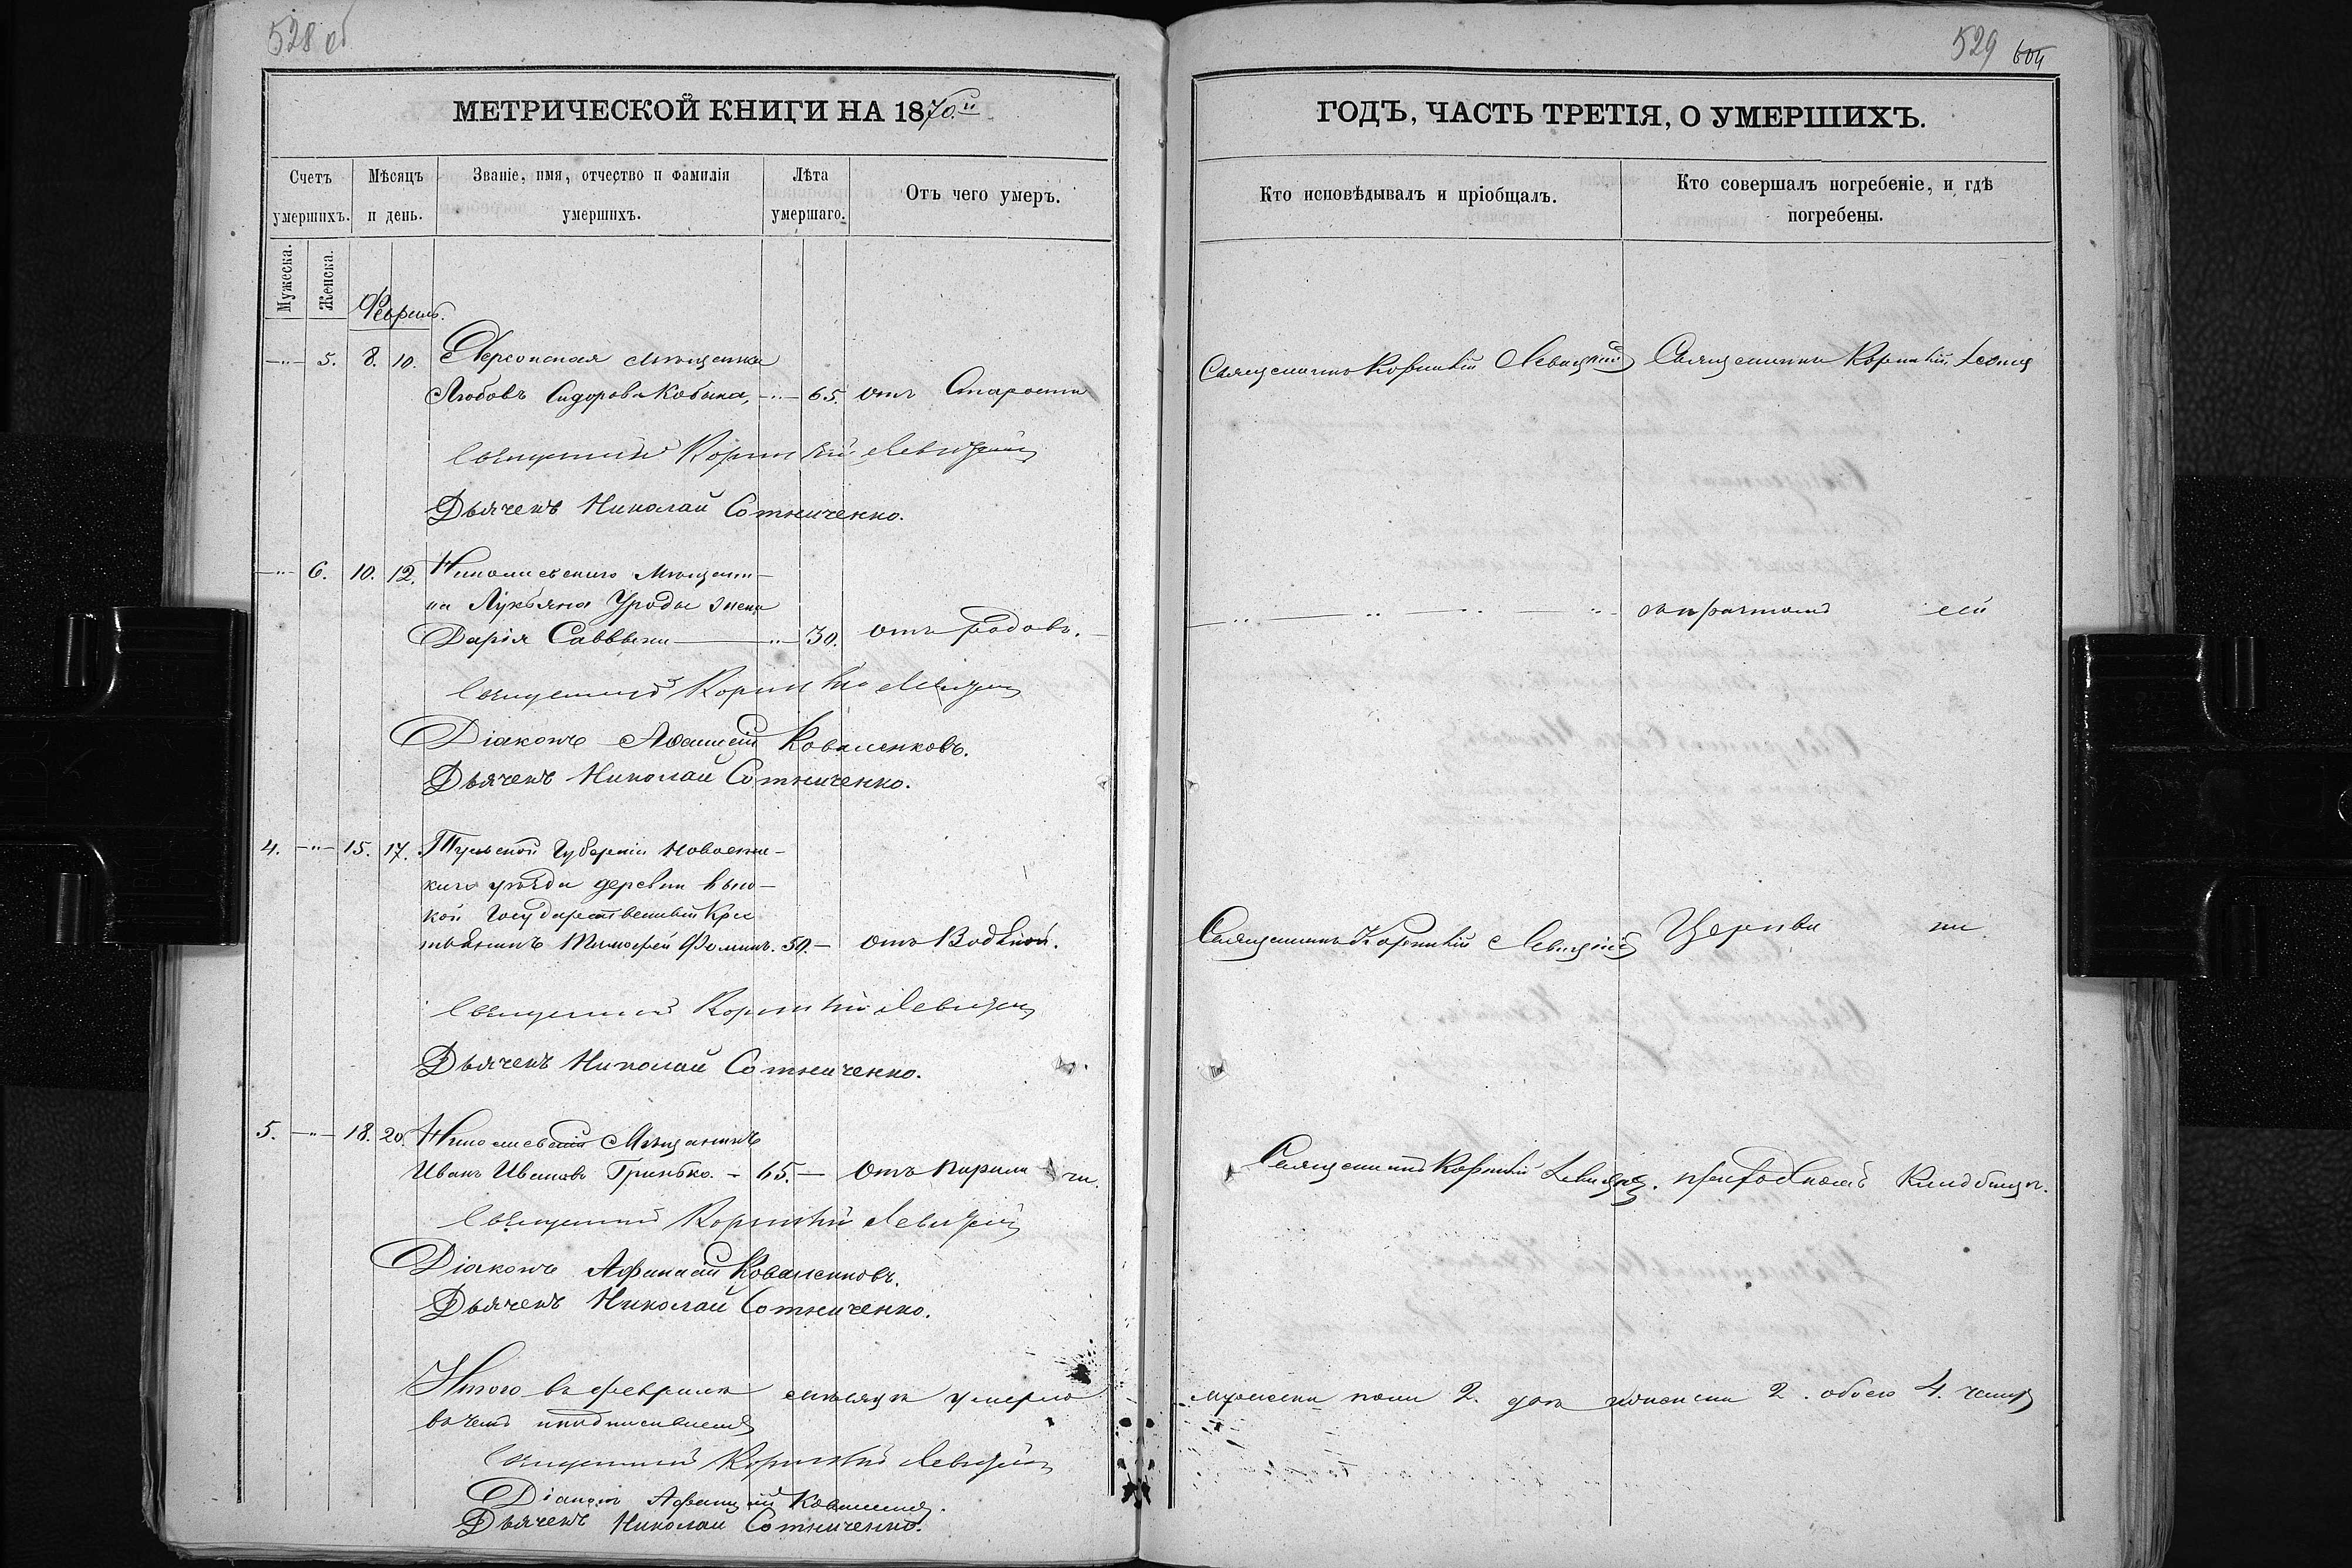 528 об
МЕТРИЧЕСКОЙ КНИГИ НА 1870.й
Счетъ умершихъ.
Мѣсяцъ и день.
Званіе, имя, отчество и фамилія умершихъ.
Лѣта умершаго.
Отъ чего умеръ.
Мужеска.
Женска.
Февраль.
—"— 5. 8. 10. Херсонская мѣщанка
Любовь Сидорова Кобына, —"— 65. отъ Старости
Священникъ Корнилій Левицкій
Дьячекъ Николай Сотниченко.
—"— 6. 10. 12. Николаевскаго Мѣщани-
на Лукьяна Уроды жена
Дарія Саввына —"— 30. отъ родовъ.
Священникъ Корнилій Левицкій
Діаконъ Афанасій Коваленковъ.
Дьячекъ Николай Сотниченко.
4. —"— 15. 17. Тульской Губерніи
уѣзда деревни
кой Государственный Крес
тьянинъ Тимофей Фоминъ. 50. — отъ Водяной.
Священникъ Корнилій Левицкій
Дьячекъ Николай Сотниченко.
5. —"— 18. 20. Николаевскій Мѣщанинъ
Иванъ Ивановъ Гринько. — 65. — отъ Парали ча.
Священникъ Корнилій Левицкій
Діаконъ Афанасій Коваленковъ.
Дьячекъ Николай Сотниченко.
Итого въ февралѣ мѣсяцѣ умерло
въ чемъ и подписываемся
Священникъ Корнилій Левицкій
Діаконъ Афанасій Коваленковъ.
Дьячекъ Николай Сотниченко.
529 604
ГОДЪ, ЧАСТЬ ТРЕТІЯ, О УМЕРШИХЪ.
Кто исповѣдывалъ и пріобщалъ.
Кто совершалъ погребеніе, и гдѣ погребены.
Священникъ Корнилій Левицкій Священникъ Корнилій
съ причтомъ сей
Священникъ Корнилій Левицкій Церкви на
Священникъ Корнилій Левицкій. приходскомъ Кладбищѣ.
мужеска пола 2. два женска 2. обоего 4. четыре